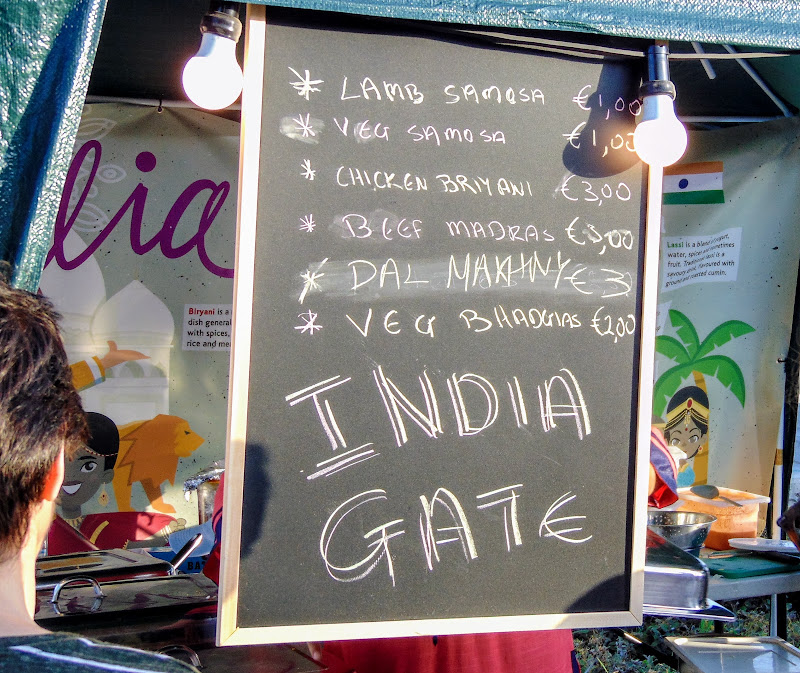 * LAMB SAMOSA €1,00
* VEG SAMOSA €1,00
* CHICKEN BRIYANI €3,00
* BEEF MADRAS €3,00
* DAL MAKHNY €3
* VEG BHADGIAS €2,00
INDIA
GATE
lia
Biryani is a
dish general
with spices,
rice and me
Lassi is a blend
water, spices and sometimes
fruit. Traditional lassi is a
savoury drink, flavoured with
ground and roasted cumin.